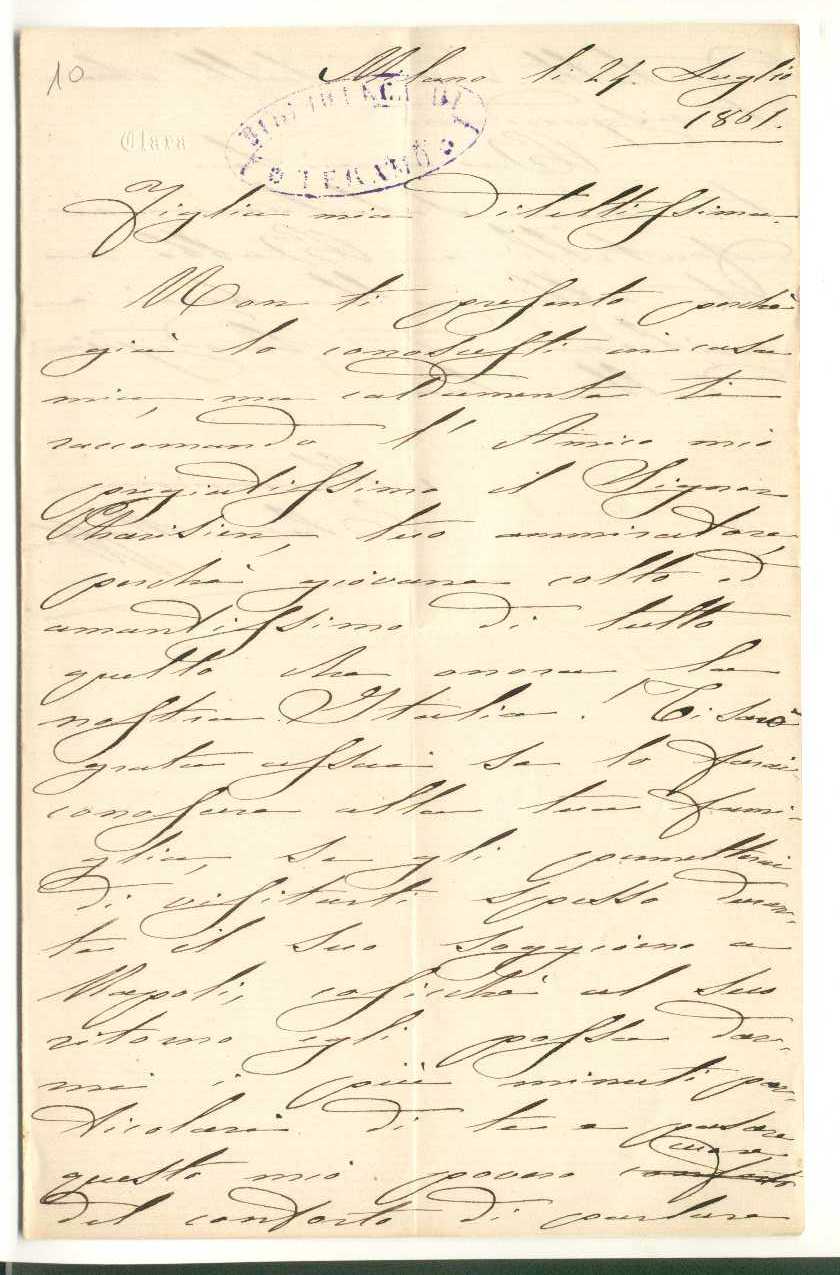 10
Milano li 24. Luglio
1861.
Clara
BIBLIOTECA DI
TERAMO
Figlia mia Dilettissima.
Non ti presento perchè
già lo conoscesti in casa
mia, ma caldamente ti
raccomando l'Amico mio
pregiatissimo il Signor
tuo ammiratore,
perchè giovane colto ed
amantissimo di tutto
quello che onora la
nostra Italia. Ti sarò
grata assai se lo farai
conoscere alla tua fami-
glia, se gli permetterai
di visitarti spesso duran-
te il suo soggiorno a
Napoli, cosicchè al suo
ritorno egli possa dar-
mi i più minuti par-
ticolari di te e
cuore
questo mio povero conforto
del conforto di parlare